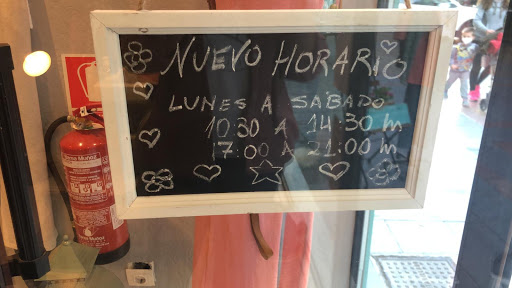 NUEVO HORARIO
LUNES A SÁBADO
10:30 A 14:30 h
17:00 A 21:00 h